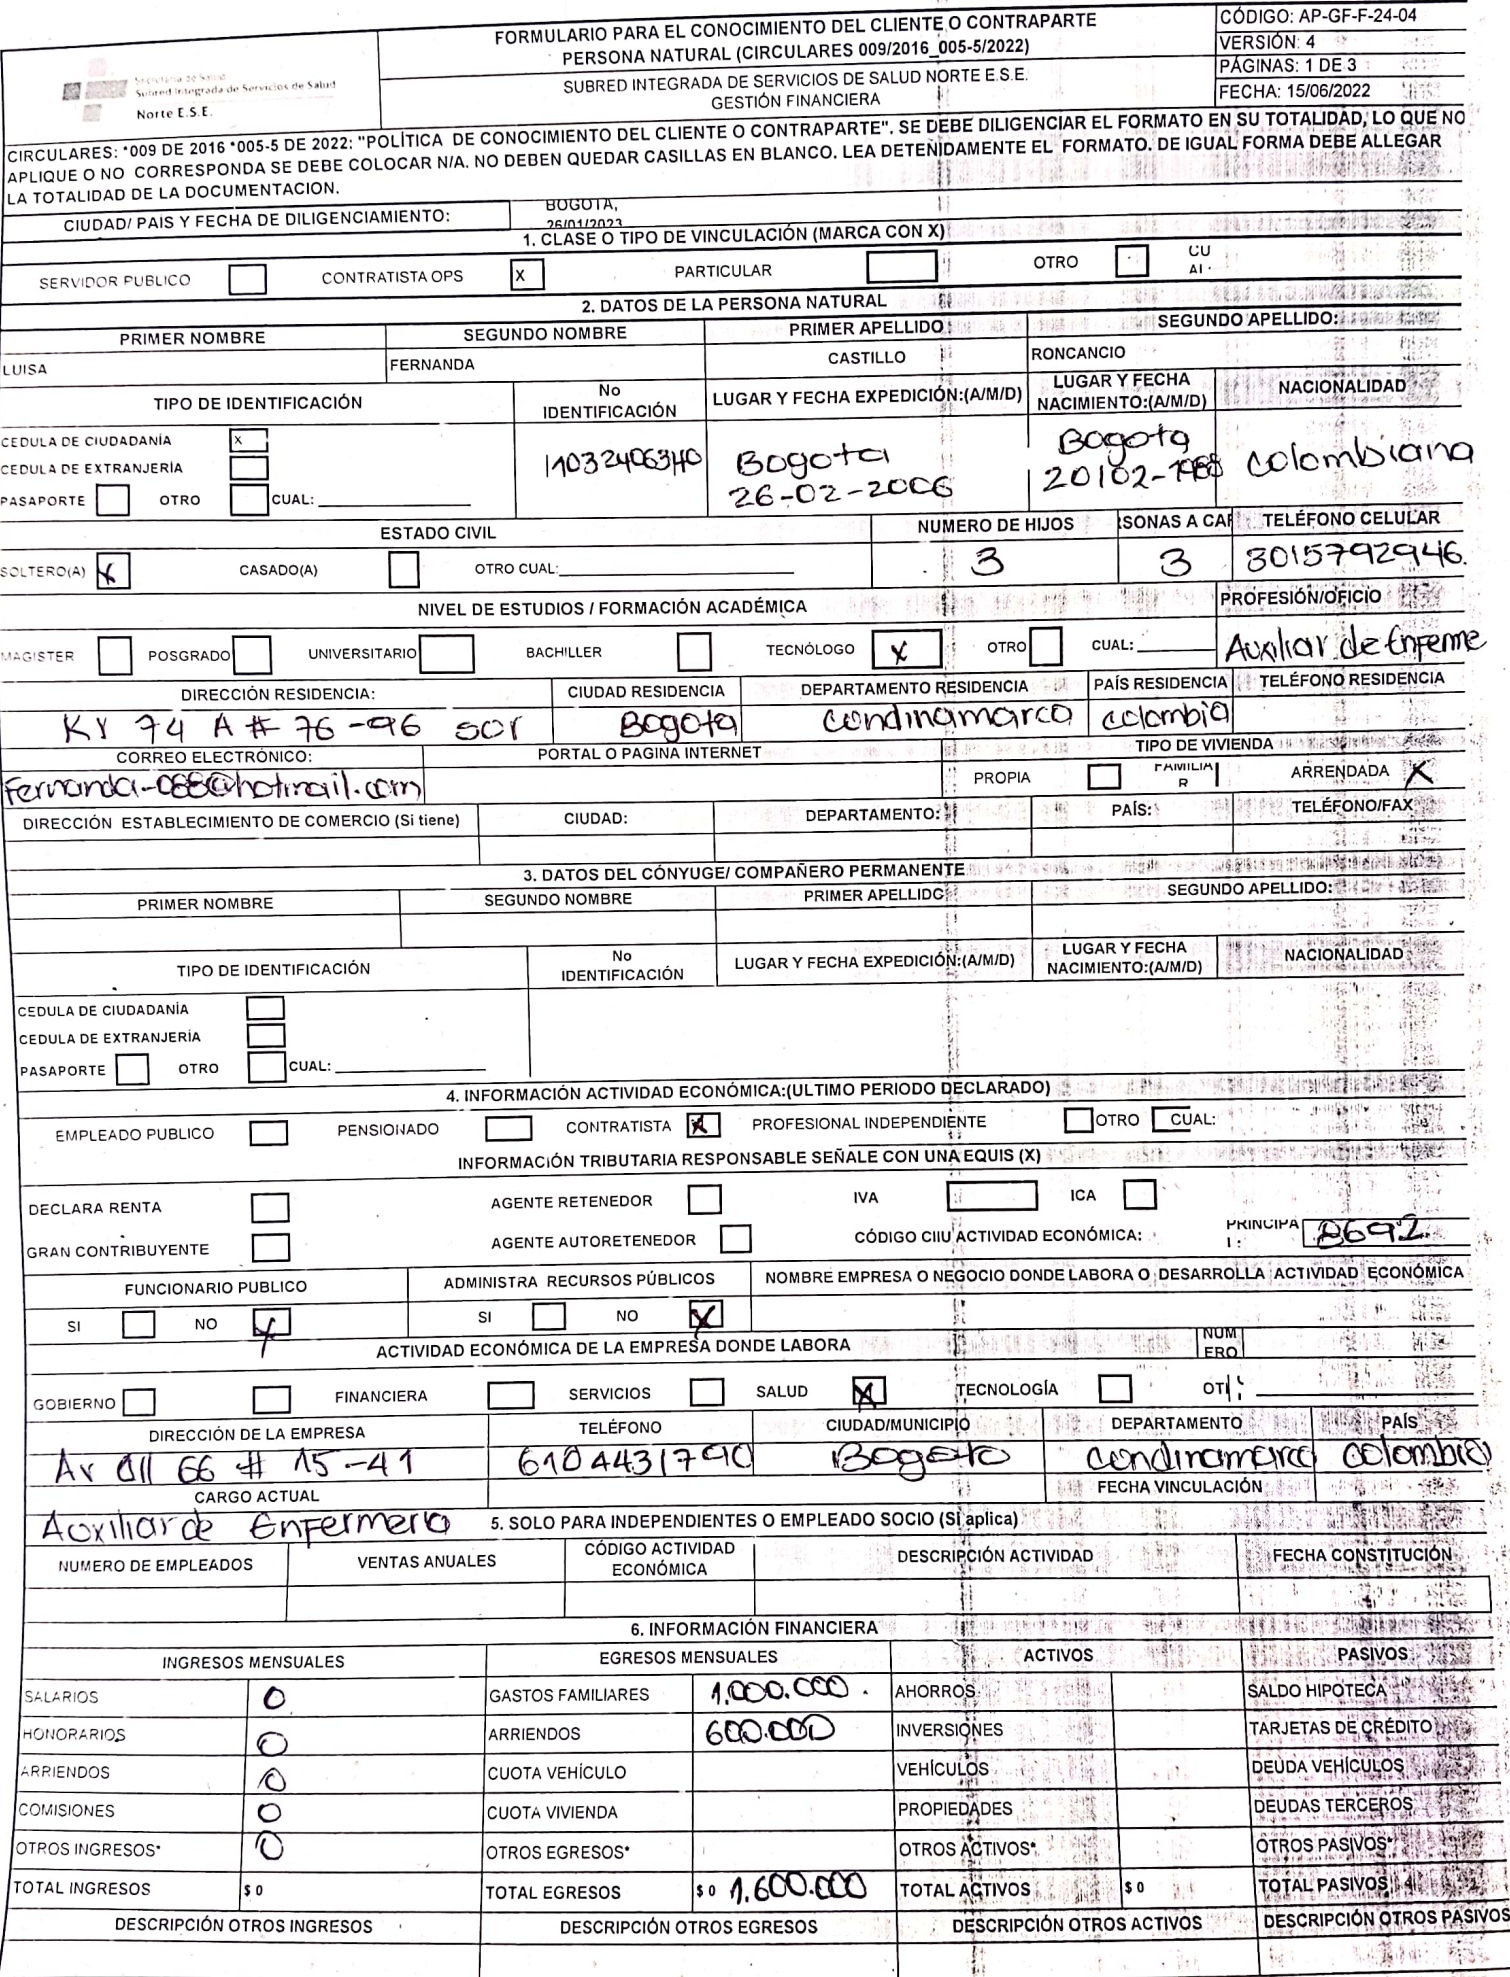 FORMULARIO PARA EL CONOCIMIENTO DEL CLIENTE O CONTRAPARTE
PERSONA NATURAL (CIRCULARES 009/2016_005-5/2022)
SUBRED INTEGRADA DE SERVICIOS DE SALUD NORTE E.S.E.
GESTIÓN FINANCIERA
CÓDIGO: AP-GF-F-24-04
VERSIÓN: 4
PÁGINAS: 1 DE 3
FECHA: 15/06/2022
Secretaría de Salud
Subred Integrada de Servicios de Salud
Norte E.S.E.
CIRCULARES: *009 DE 2016 *005-5 DE 2022: "POLÍTICA DE CONOCIMIENTO DEL CLIENTE O CONTRAPARTE". SE DEBE DILIGENCIAR EL FORMATO EN SU TOTALIDAD, LO QUE NO
APLIQUE O NO CORRESPONDA SE DEBE COLOCAR N/A. NO DEBEN QUEDAR CASILLAS EN BLANCO. LEA DETENIDAMENTE EL FORMATO. DE IGUAL FORMA DEBE ALLEGAR
LA TOTALIDAD DE LA DOCUMENTACION.
CIUDAD/ PAIS Y FECHA DE DILIGENCIAMIENTO: BOGOTA,
26/01/2023
1. CLASE O TIPO DE VINCULACIÓN (MARCA CON X)
SERVIDOR PUBLICO CONTRATISTA OPS X PARTICULAR OTRO CU
AL:
2. DATOS DE LA PERSONA NATURAL
PRIMER NOMBRE SEGUNDO NOMBRE PRIMER APELLIDO SEGUNDO APELLIDO:
LUISA FERNANDA CASTILLO RONCANCIO
TIPO DE IDENTIFICACIÓN No IDENTIFICACIÓN LUGAR Y FECHA EXPEDICIÓN:(A/M/D) LUGAR Y FECHA NACIMIENTO:(A/M/D) NACIONALIDAD
CEDULA DE CIUDADANÍA X
CEDULA DE EXTRANJERÍA
1032406340 Bogota Bogota colombiana
26-02-2006
PASAPORTE OTRO CUAL:
ESTADO CIVIL NUMERO DE HIJOS RSONAS A CAR TELÉFONO CELULAR
SOLTERO(A) X CASADO(A) OTRO CUAL: 3 3 3015792946.
NIVEL DE ESTUDIOS / FORMACIÓN ACADÉMICA PROFESIÓN/OFICIO
MAGISTER POSGRADO UNIVERSITARIO BACHILLER TECNÓLOGO X OTRO CUAL: Auxiliar de Enferme
DIRECCIÓN RESIDENCIA: CIUDAD RESIDENCIA DEPARTAMENTO RESIDENCIA PAÍS RESIDENCIA TELÉFONO RESIDENCIA
Kr 74 A # 76-96 sor Bogota condinamarca colombia
CORREO ELECTRÓNICO: PORTAL O PAGINA INTERNET TIPO DE VIVIENDA
Fernanda-088@hotmail.com PROPIA FAMILIA
R ARRENDADA X
DIRECCIÓN ESTABLECIMIENTO DE COMERCIO (Si tiene) CIUDAD: DEPARTAMENTO: PAÍS: TELÉFONO/FAX
3. DATOS DEL CÓNYUGE/ COMPAÑERO PERMANENTE
PRIMER NOMBRE SEGUNDO NOMBRE PRIMER APELLIDO SEGUNDO APELLIDO:
TIPO DE IDENTIFICACIÓN No IDENTIFICACIÓN LUGAR Y FECHA EXPEDICIÓN:(A/M/D) LUGAR Y FECHA NACIMIENTO:(A/M/D) NACIONALIDAD
CEDULA DE CIUDADANÍA
CEDULA DE EXTRANJERÍA
PASAPORTE OTRO CUAL:
4. INFORMACIÓN ACTIVIDAD ECONÓMICA:(ULTIMO PERIODO DECLARADO)
EMPLEADO PUBLICO PENSIONADO CONTRATISTA X PROFESIONAL INDEPENDIENTE OTRO CUAL:
INFORMACIÓN TRIBUTARIA RESPONSABLE SEÑALE CON UNA EQUIS (X)
DECLARA RENTA AGENTE RETENEDOR IVA ICA
GRAN CONTRIBUYENTE AGENTE AUTORETENEDOR CÓDIGO CIIU ACTIVIDAD ECONÓMICA: PRINCIPA
L: 8692
FUNCIONARIO PUBLICO ADMINISTRA RECURSOS PÚBLICOS NOMBRE EMPRESA O NEGOCIO DONDE LABORA O DESARROLLA ACTIVIDAD ECONÓMICA
SI NO X SI NO X
ACTIVIDAD ECONÓMICA DE LA EMPRESA DONDE LABORA NUM
ERO
GOBIERNO FINANCIERA SERVICIOS SALUD X TECNOLOGÍA OT
DIRECCIÓN DE LA EMPRESA TELÉFONO CIUDAD/MUNICIPIO DEPARTAMENTO PAÍS
Av Cll 66 # 15-41 6104431790 Bogota condinamarca colombia
CARGO ACTUAL FECHA VINCULACIÓN
Auxiliar de Enfermeria 5. SOLO PARA INDEPENDIENTES O EMPLEADO SOCIO (Si aplica)
NUMERO DE EMPLEADOS VENTAS ANUALES CÓDIGO ACTIVIDAD ECONÓMICA DESCRIPCIÓN ACTIVIDAD FECHA CONSTITUCIÓN
6. INFORMACIÓN FINANCIERA
INGRESOS MENSUALES EGRESOS MENSUALES ACTIVOS PASIVOS
SALARIOS 0 GASTOS FAMILIARES 1.000.000. AHORROS SALDO HIPOTECA
HONORARIOS 0 ARRIENDOS 600.000 INVERSIONES TARJETAS DE CRÉDITO
ARRIENDOS 0 CUOTA VEHÍCULO VEHÍCULOS DEUDA VEHÍCULOS
COMISIONES 0 CUOTA VIVIENDA PROPIEDADES DEUDAS TERCEROS
OTROS INGRESOS* 0 OTROS EGRESOS* OTROS ACTIVOS* OTROS PASIVOS*
TOTAL INGRESOS $ 0 TOTAL EGRESOS $ 0 1.600.000 TOTAL ACTIVOS $ 0 TOTAL PASIVOS
DESCRIPCIÓN OTROS INGRESOS DESCRIPCIÓN OTROS EGRESOS DESCRIPCIÓN OTROS ACTIVOS DESCRIPCIÓN OTROS PASIVOS